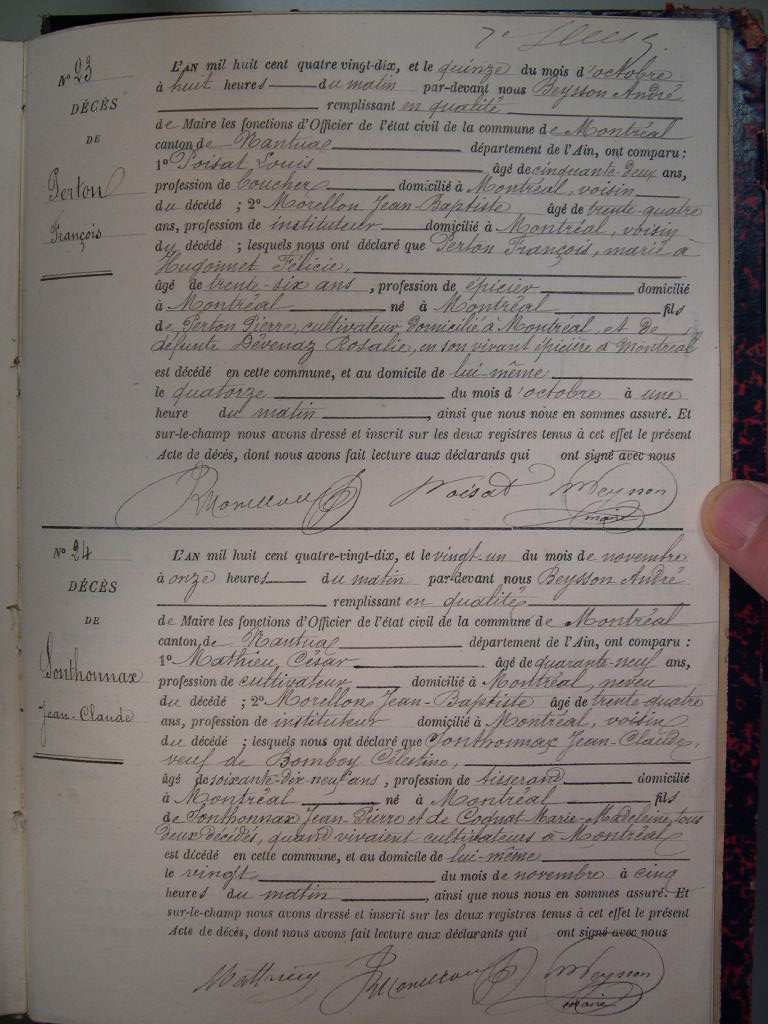 7e
N° 23
DÉCÈS
DE
Perton
François
L'AN mil huit cent quatre vingt-dix, et le quinze du mois d'octobre
à huit heures du matin par-devant nous Beysson André
remplissant en qualité
de Maire les fonctions d'Officier de l'état civil de la commune de Montréal
canton de Nantua département de l'Ain, ont comparu :
1° Poisat Louis âgé de cinquante deux ans,
profession de boucher domicilié à Montréal, voisin
du décédé ; 2° Morellon Jean-Baptiste âgé de trente-quatre
ans, profession de instituteur domicilié à Montréal, voisin
du décédé ; lesquels nous ont déclaré que Perton François, marié à
Hugonnet Félicie,
âgé de trente-six ans, profession de épicier domicilié
à Montréal né à Montréal fils
de Perton Pierre, cultivateur, domicilié à Montréal et de
défunte Dévenaz Rosalie, en son vivant épicière à Montréal
est décédé en cette commune, et au domicile de lui-même
le quatorze du mois d'octobre à une
heure du matin, ainsi que nous nous en sommes assuré. Et
sur-le-champ nous avons dressé et inscrit sur les deux registres tenus à cet effet le présent
Acte de décès, dont nous avons fait lecture aux déclarants qui ont signé avec nous
JBMorellon Poisat
maire
N° 24
DÉCÈS
DE
Sonthonnax
Jean-Claude
L'AN mil huit cent quatre-vingt-dix, et le vingt-un du mois de novembre
à onze heures du matin par-devant nous Beysson André
remplissant en qualité
de Maire les fonctions d'Officier de l'état civil de la commune de Montréal
canton de Nantua département de l'Ain, ont comparu :
1° Mathieu César âgé de quarante-neuf ans,
profession de cultivateur domicilié à Montréal, neveu
du décédé ; 2° Morellon Jean-Baptiste âgé de trente-quatre
ans, profession de instituteur domicilié à Montréal, voisin
du décédé ; lesquels nous ont déclaré que Sonthonnax Jean-Claude,
veuf de Bomboy Célestine,
âgé de soixante-dix neuf ans, profession de tisserand domicilié
à Montréal né à Montréal fils
de Sonthonnax Jean-Pierre et de Cognat Marie-Madeleine, tous
deux décédés, quand vivaient cultivateurs à Montréal
est décédé en cette commune, et au domicile de lui-même
le vingt du mois de novembre à cinq
heures du matin, ainsi que nous nous en sommes assuré. Et
sur-le-champ nous avons dressé et inscrit sur les deux registres tenus à cet effet le présent
Acte de décès, dont nous avons fait lecture aux déclarants qui ont signé avec nous
Mathieu JBMorellon
maire